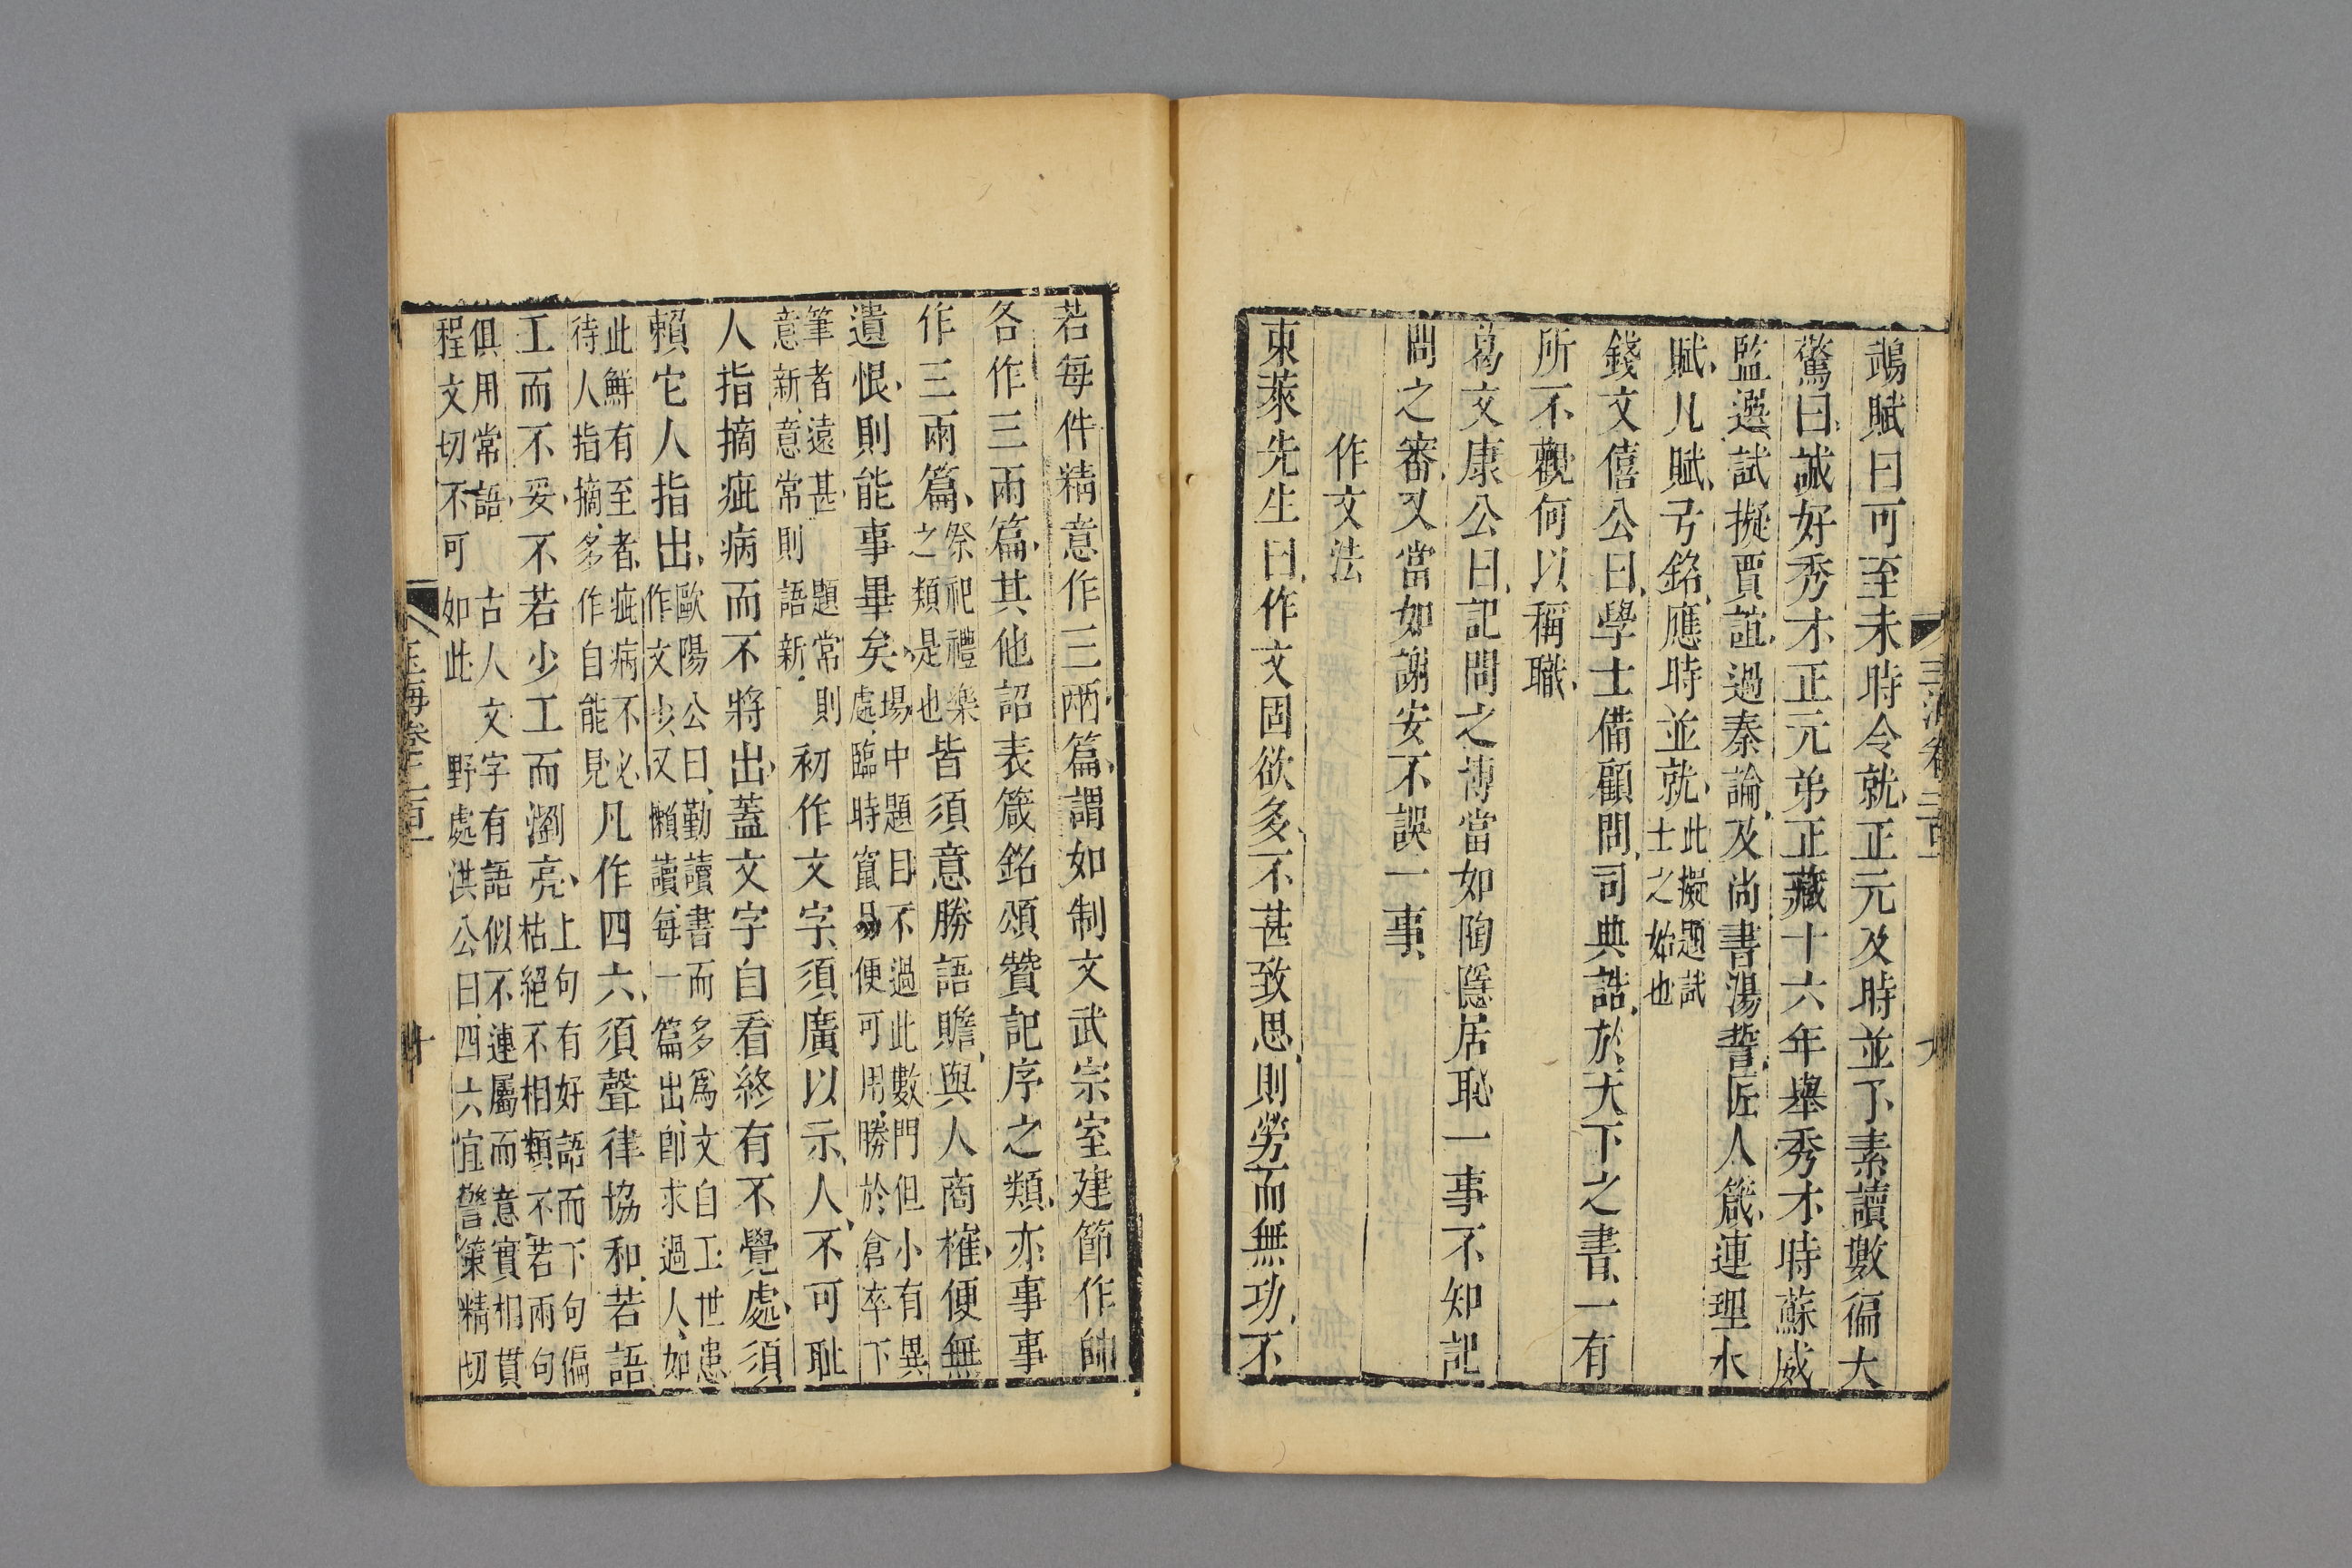 鵡賦曰可至未時令就正元及時並了素讀數徧大
驚曰誠好秀才正元弟正藏十六年舉秀才時蘇威
監選試擬賈誼過秦論及尚書湯誓匠人箴連理木
賦几賦弓銘應時並就此擬題試士之始也
錢文僖公曰學士備顧問司典誥於天下之書一有
所不觀何以稱職
葛文康公曰記問之博當如陶隱居恥一事不知記
問之審又當如謝安不誤一事
作文法
東萊先生曰作文固欲多不甚致思則勞而無功不
若每件精意作三兩篇謂如制文武宗室建節作帥
各作三兩篇其他詔表箴銘頌贊記序之類亦事事
作三兩篇祭祀禮樂之類是也皆須意勝語贍與人商榷便無
遺恨則能事畢矣場中題目不過此數門但小有異處臨時竄易便可用勝於倉卒下
筆者遠甚題常則意新意常則語新初作文字須廣以示人不可耻
人指摘疵病而不將出蓋文字自看終有不覺處須
賴它人指出歐陽公曰勤讀書而多爲文自工世患作文少又懶讀每一篇出卽求過人如
此鮮有至者疵病不必待人指摘多作自能見凡作四六須聲律協和若語
工而不妥不若少工而瀏亮上句有好語而下句偏枯絕不相類不若兩句
俱用常語古人文字有語似不連屬而意實相貫程文切不可如此野處洪公曰四六宜警策精切
玉海卷二百一
十